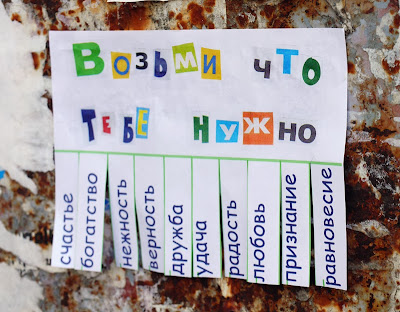 Возьми что
тебе нужно
счастье
богатство
нежность
верность
дружба
удача
радость
любовь
признание
равновесие